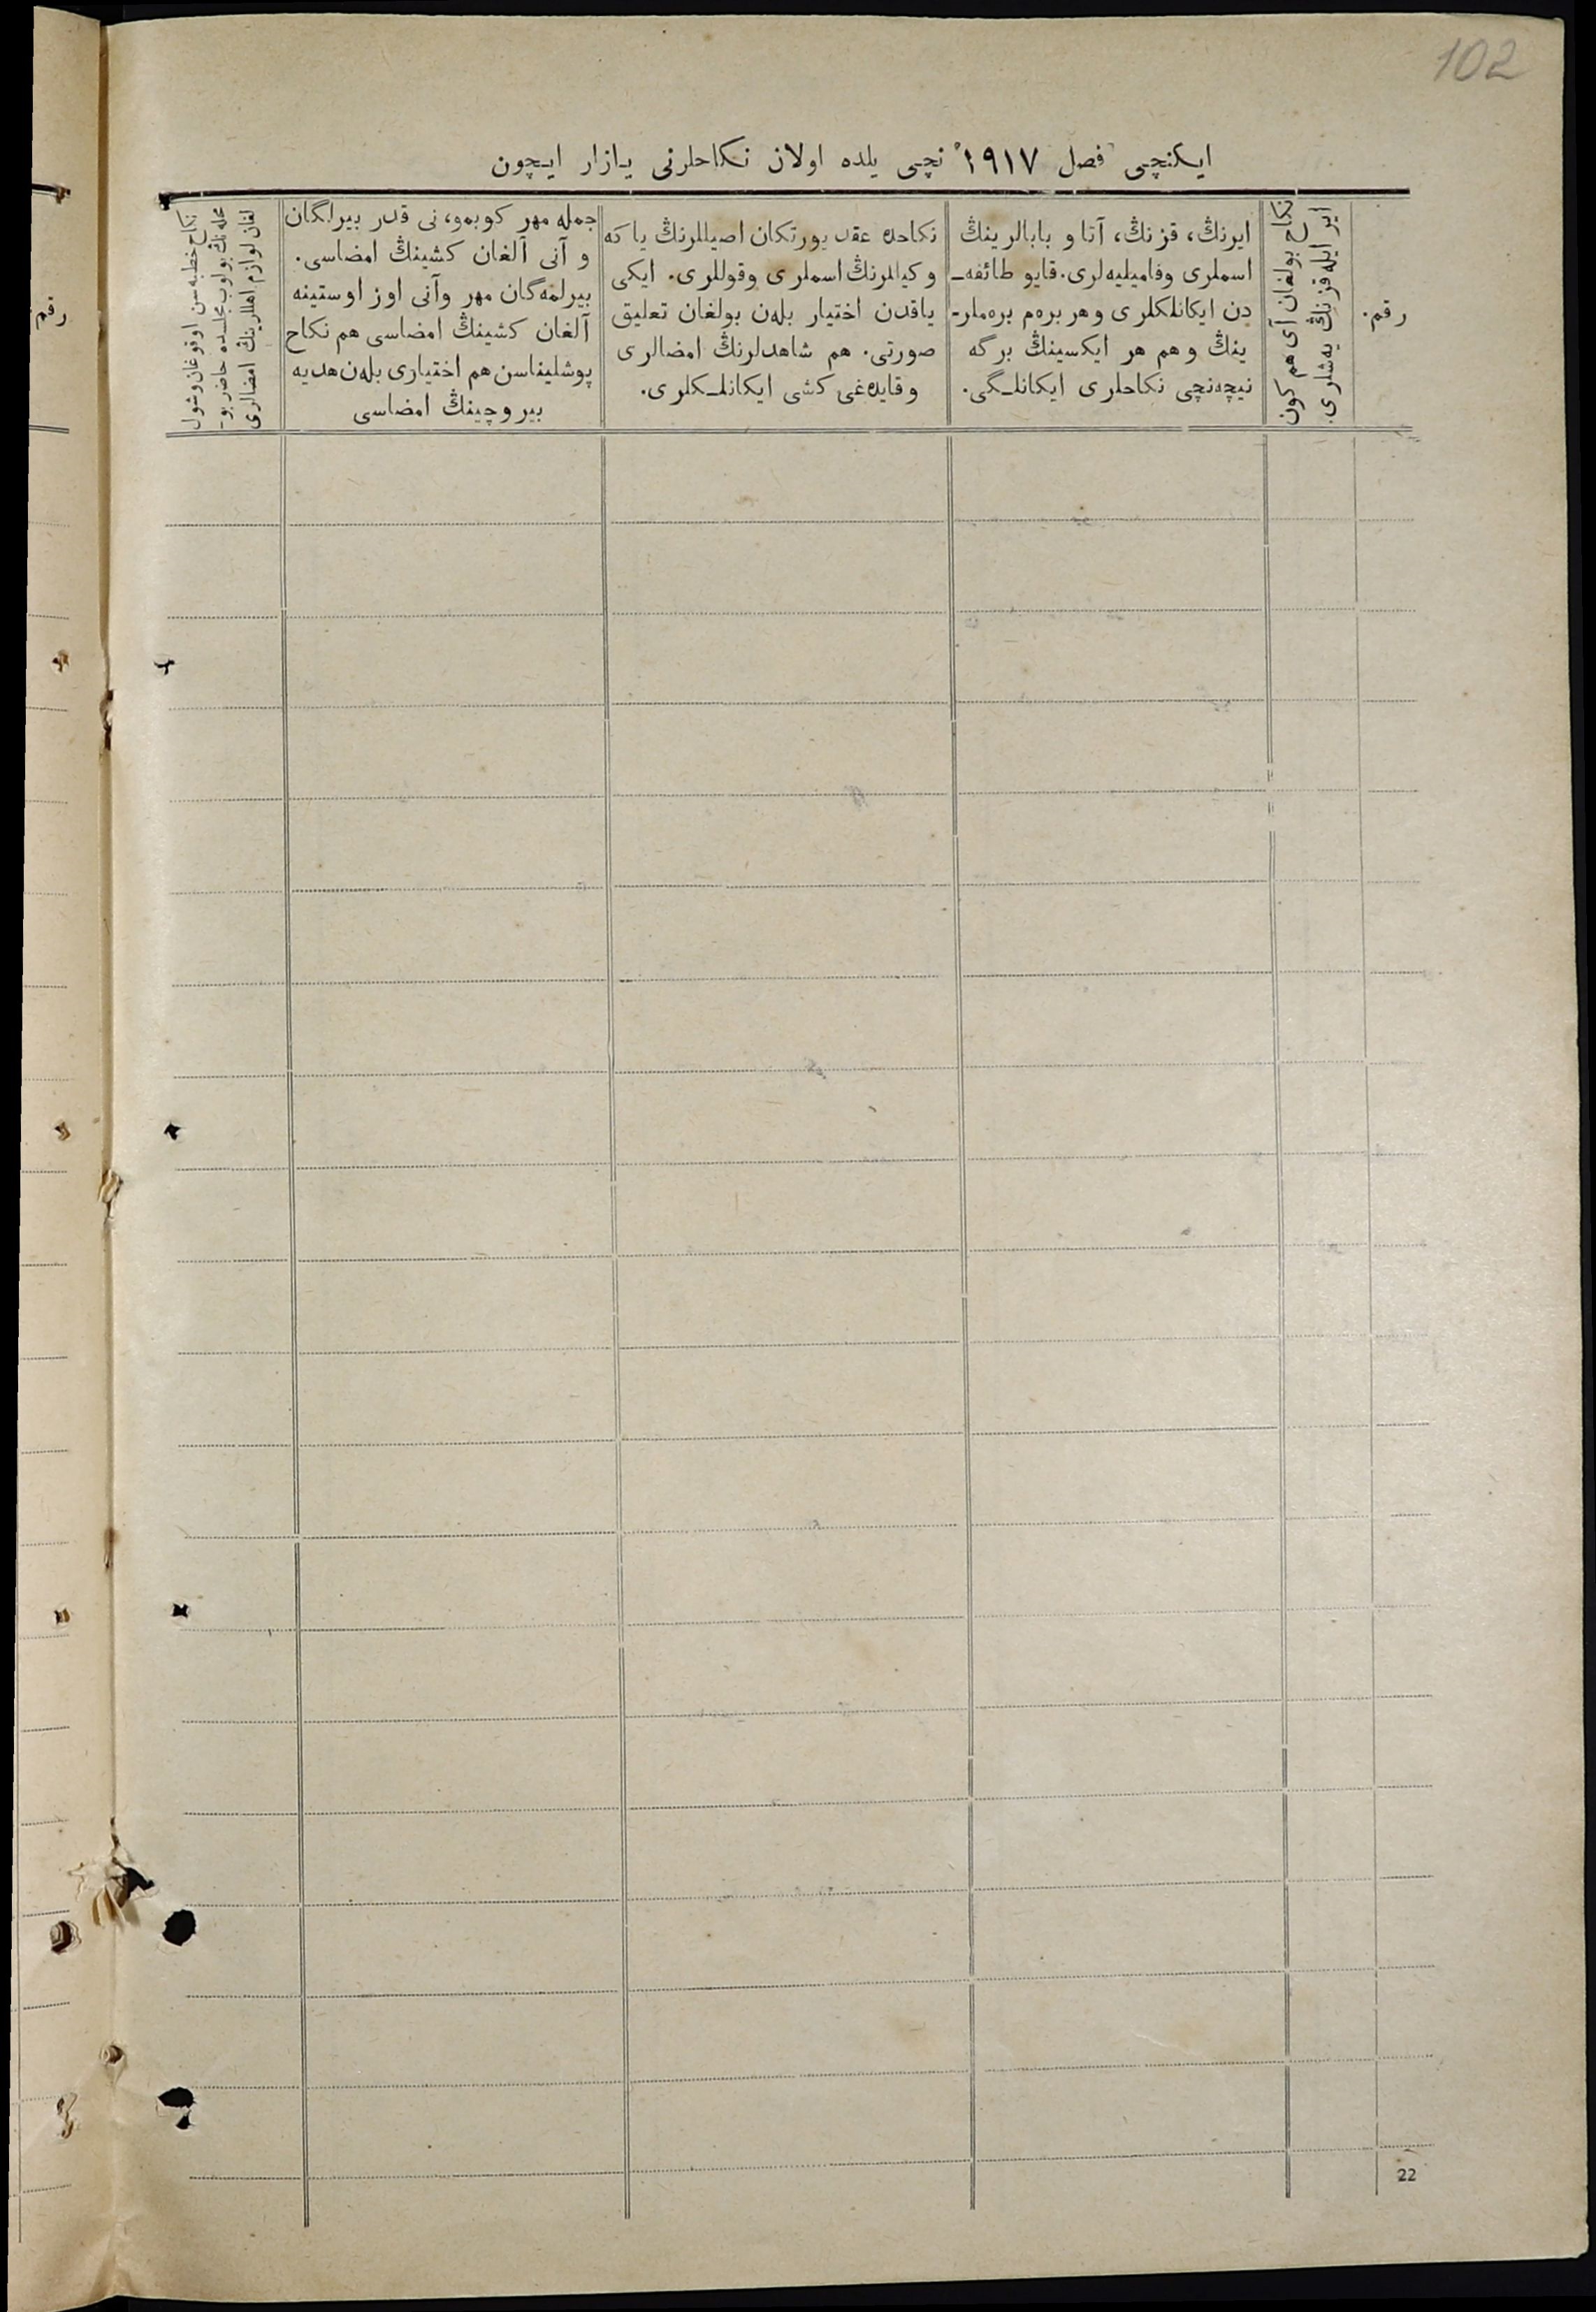 102
ایکنچی فصل ۱۹۱۷ نچی یلده اولان نکاحلرنی یازار ایچون
رقم.
نکاح بولغان آی هم کون
ایر ایله قزنڭ یه‌شلری.
ایرنڭ، قزنڭ، آتا و بابالرینڭ
اسملری وفامیلیه‌لری. قایو طائفه‌ـ
دن ایکانلکلری و هر بره‌م بره‌ملرـ
ینڭ و هم هر ایکسینڭ برگه
نیچه‌نچی نکاحلری ایکانلـگی.
نکاحده عقد یورتکان اصیللرنڭ یا که
وکیللرنڭ اسملری وقوللری. ایکی
یاقدن اختیار بله‌ن بولغان تعلیق
صورتی. هم شاهدلرنڭ امضالری
وقایده‌غی کشی ایکانلـکلری.
جمله مهر کوبمو، نی قدر بیرلگان
و آنی آلغان کشینڭ امضاسی.
بیرلمه‌گان مهر وآنی اوز اوستینه
آلغان کشینڭ امضاسی هم نکاح
پوشلیناسن هم اختیاری بله‌ن هدیه
بیروچینڭ امضاسی
نکاح خطبه سن اوقوغان وشول
محله نڭ بولوب مجلـده حاضر بوـ
لغان لوازم اهللرینڭ امضالری
رقم
22